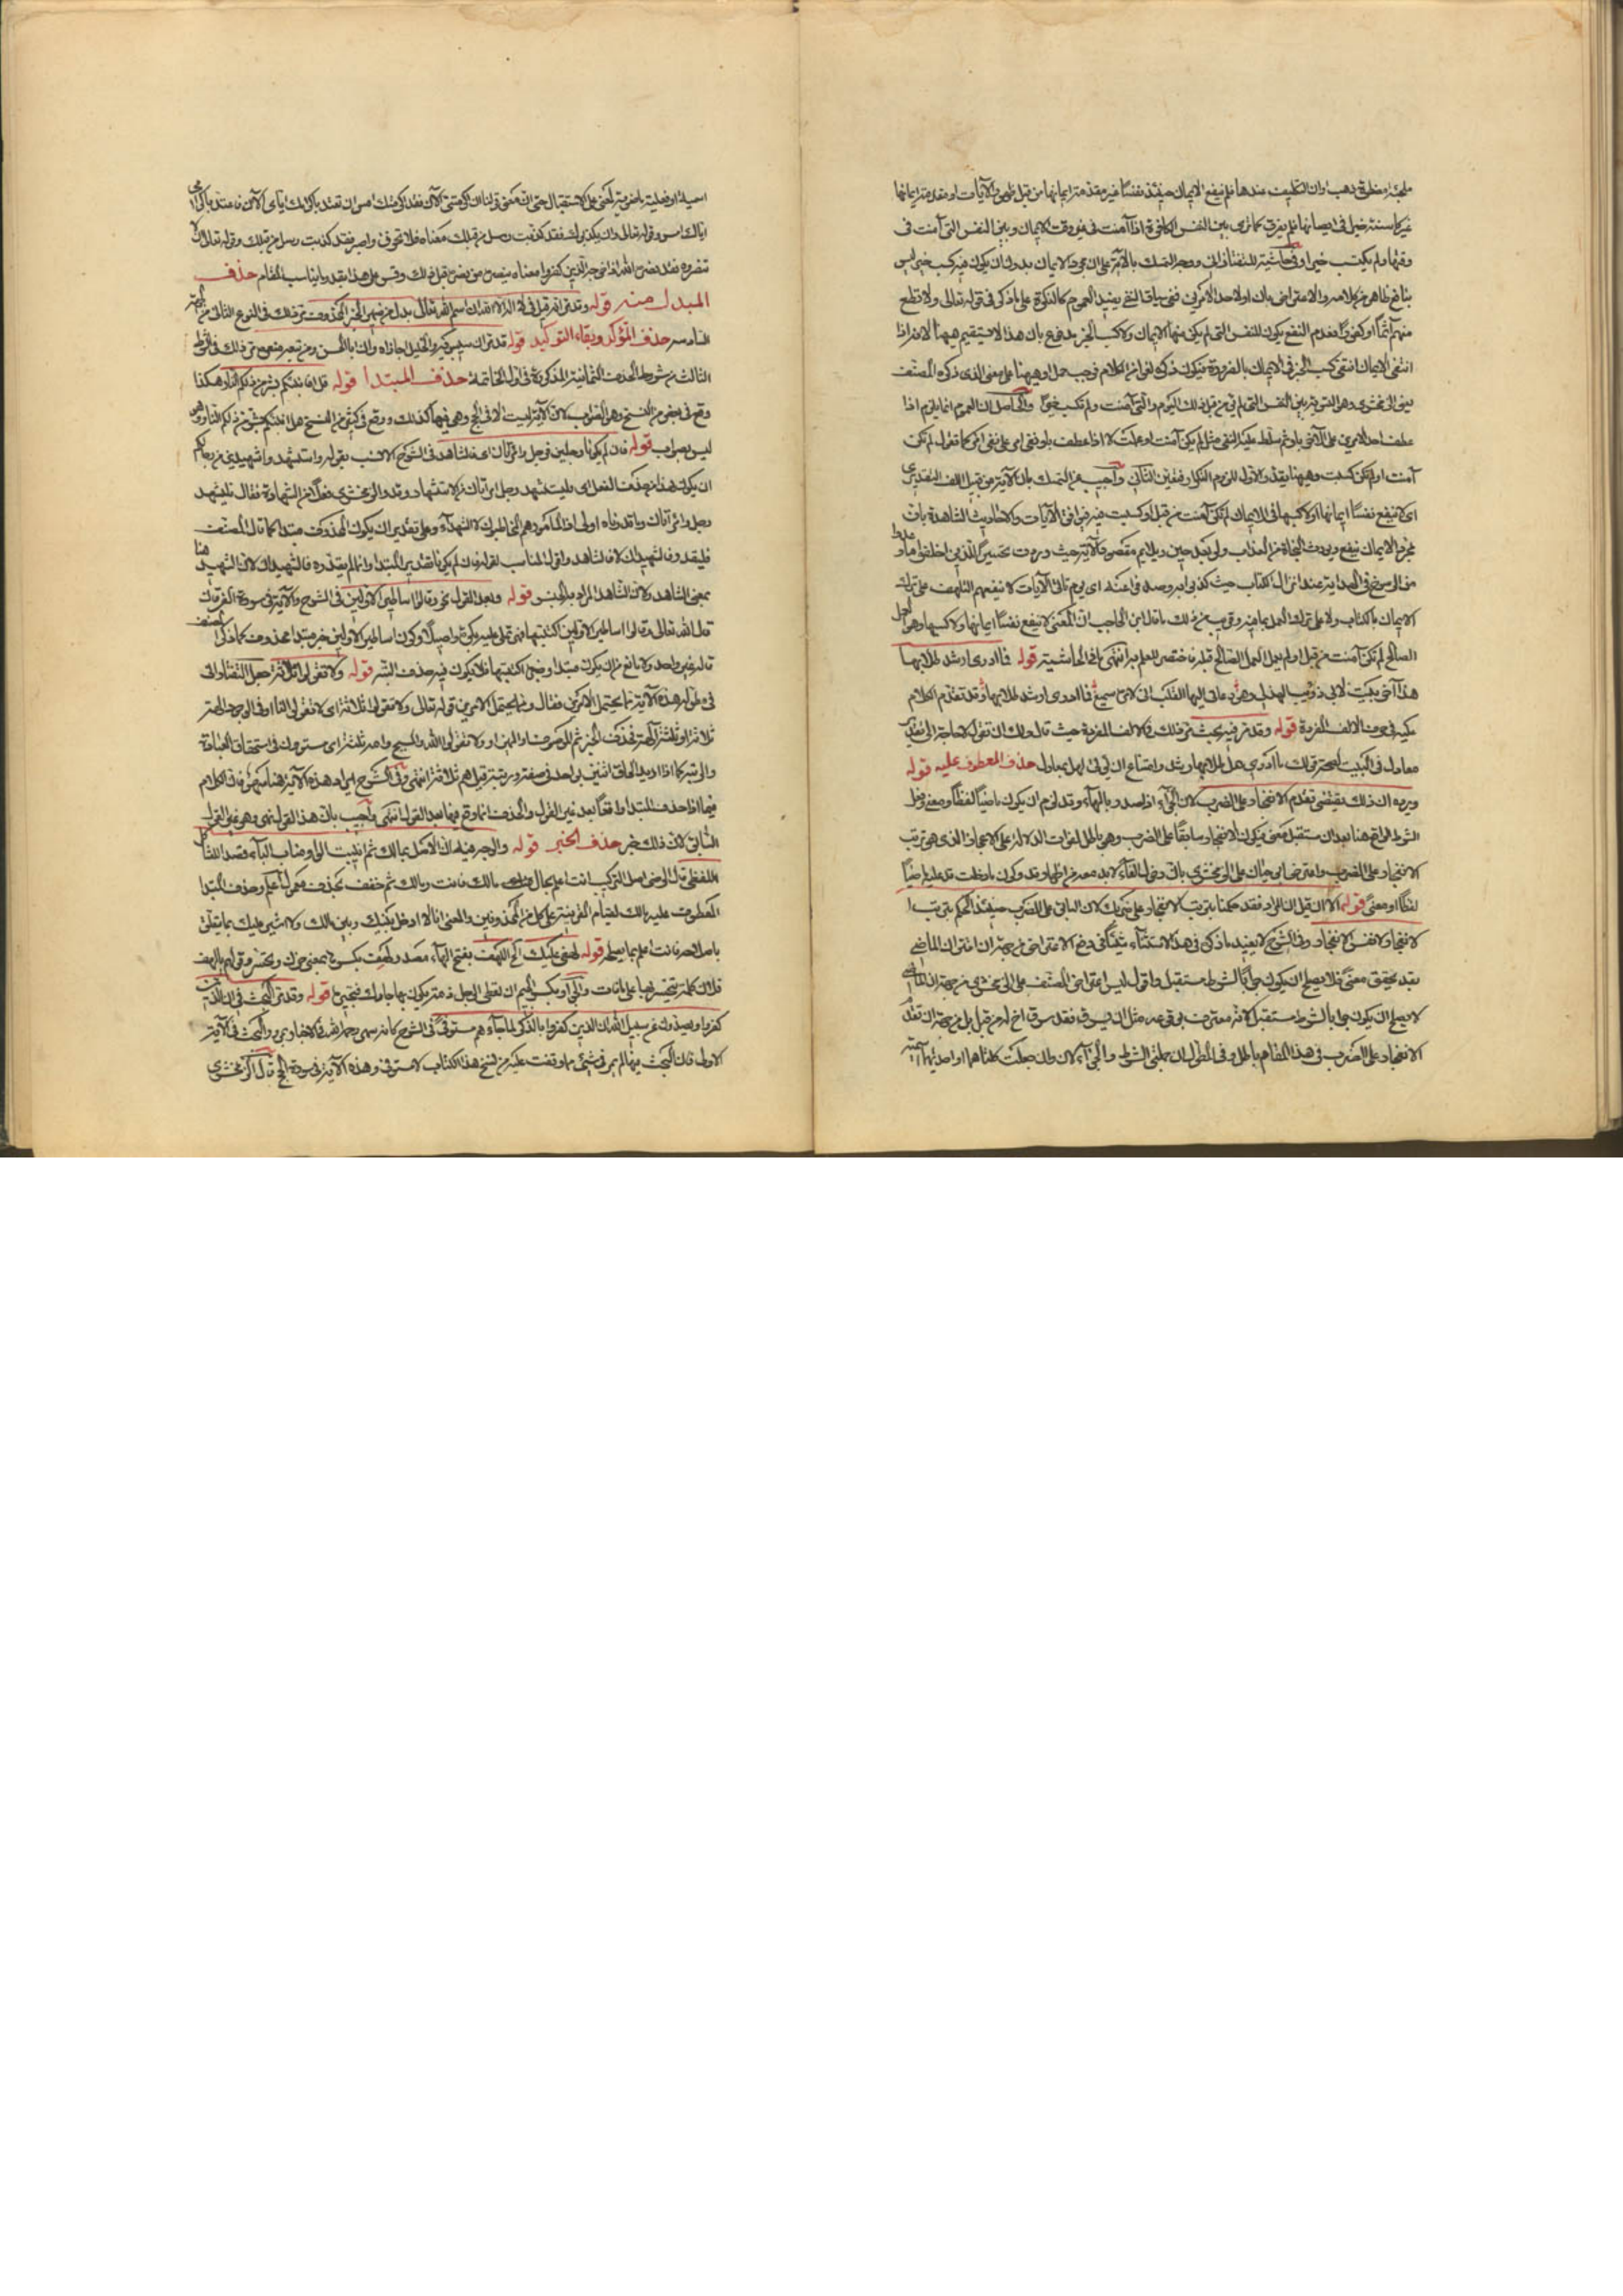 ملجئة مضطرة ذهب اوان التكليف عندها فلم ينفع الايمان حينئذ نفسا غير مقدمة ايمانها من قبل ظهور الآيات او مقدمة ايمانها
غير كاسبة خيرا في ايمانها فلم يفرق كما ترى بين النفس الكافرة اذا آمنت في غير وقت الايمان وبين النفس التي آمنت في
وقتها ولم تكتسب خيرا وفي حاشيته للتفتازاني ووجه التمسك بالآية على ان مجرد الايمان بدون ان يكون فيه كسب خير ليس
بنافع ظاهر من كلامه والاعتراض بان او لاحد الامرين ففي سياق النفي يفيد العموم كالنكرة على ما ذكر في قوله تعالى ولا تطع
منهم آثما او كفورا فعدم النفع يكون للنفس التي لم يكن منها الايمان ولا كسب الخير يدفع بان هذا لا يستقيم ههنا لانه اذا
انتفى الايمان انتفى كسب الخير في الايمان بالضرورة فيكون ذكره لغوا من الكلام فوجب حمل او ههنا على معنى الذي ذكره المصنف
يعني الزمخشري وهو التسوية بين النفس التي لم تؤمن قبل ذلك اليوم والتي آمنت ولم تكسب خيرا والحاصل ان العموم انما يلزم اذا
عطف احد الامرين على الآخر باو ثم سلط عليه النفي مثل لم يكن آمنت او عملت لا اذا عطف باو نفي امر على نفي امر كما تقول لم تكن
آمنت او لم تكن كسبت وههنا يتعذر الاول للزوم التكرار فتعين الثاني واجيب عن التمسك بان الآية من قبيل اللف التقديري
اي لا ينفع نفسا ايمانها ولا كسبها في الايمان لم تكن آمنت من قبل او كسبت فيه فيوافق الآيات والاحاديث الشاهدة بان
مجرد الايمان ينفع ويورث النجاة من العذاب ولو بعد حين ويلايم مقصود الآية حيث وردت تحسيرا للذين اخلفوا ما وعدوا
الايمان بالكتاب ولا على ترك العمل بما فيه وقريب من ذلك ما قال ابن الحاجب ان المعنى لا ينفع نفسا ايمانها ولا كسبها وهو العمل
الصالح لم تكن آمنت من قبل او لم تعمل العمل الصالح قبل فاختصر للعلم به انتهى ما في الحاشية قوله فما ادري ارشد طلابها
هذا آخر بيت لابي ذويب الهذلي وهو دعاني اليها القلب اني لامره سميع فما ادري ارشد طلابها وقد تقدم الكلام
عليه في حرف الالف المفردة قوله وقد مر فيه بحث مر ذلك في الالف المفردة حيث قال ولك ان تقول لا حاجة الى تقدير
معادل في البيت لصحة قولك ما ادري هل طلابها رشد وامتناع ان يؤتى لهل بمعادل حذف المعطوف عليه قوله
ويرده ان ذلك يقتضي تقدم الانفجار على الضرب لان الجزاء اذا صدر بالفاء وقد لزم ان يكون ماضيا لفظا ومعنى وفعل
الشرط الواقع هنا بعد ان مستقبل معنى فيكون الانفجار سابقا على الضرب وهو باطل لفوات الدلالة على الاعجاز الذي هو ترتيب
الانفجار على الضرب واعترض ابو حيان على الزمخشري بان وقوع الفاء لا بد معه من اظهار قد وكون ما دخلت قد عليه ماضيا
لفظا او معنى قوله الا ان قيل ان المراد فقد حكمنا بترتيب الانفجار على ضربك لان الباقي على الضرب حينئذ الحكم بترتيب
الانفجار لا نفس الانفجار وفي الشرح لا يفيد ما ذكر في هذا الاستثناء شيئا في دفع الاعتراض من جهة ان اقتران الماضي
بقد يحقق معنى فلا يصلح ان يكون جوابا لشرط مستقبل واقول ليس اعتراض المصنف على الزمخشري من جهة ان الماضي
لا يصلح ان يكون جوابا لشرط مستقبل لانه معترف بوقوعه مثل ان يسرق فقد سرق اخ له من قبل بل من جهة ان تقدم
الانفجار على الضرب في هذا المقام باطل وفي المطول ان جملتي الشرط والجزاء لان وان جعلت كلتاهما او احديهما
اسمية او فعلية ماضوية لمعنى على الاستقبال حتى ان معنى قولنا ان اكرمتني الآن فقد اكرمتك امس ان تعتد باكرامك اياي الآن فاعتد باكرامي
اياك امس وقوله تعالى وان يكذبوك فقد كذبت رسل من قبلك معناه فلا تحزن واصبر فقد كذبت رسل من قبلك وقوله تعالى الا
تنصروه فقد نصره الله اذ اخرجه الذين كفروا معناه ينصره من نصره قبل ذلك وقس على هذا بقدر ما يناسب المقام حذف
المبدل منه قوله
حذف المؤكد وبقاء التوكيد قوله قد مر ان سيبويه والخليل اجازاه وان ابا الحسن ومن تبعه منعوه مر ذلك في الشرط
الثالث من شروط الحذف الثمانية المذكورة في اول الخاتمة حذف المبتدا قوله قل افانبئكم بشر من ذلكم النار هكذا
وقع في بعض من النسخ وهو الصواب لان الآية ليست الا في الحج وهي فيها كذلك ووقع في كثير من النسخ هل انبئكم بشر من ذلكم النار وهو
ليس بصواب قوله فان لم يكونا رجلين فرجل وامراتان اي فالشاهد في الشرح الانسب بقوله واستشهدوا شهيدين من رجالكم
ان يكون هذا من حذف الفعل اي فليستشهد رجل وامراتان من الاستشهاد وقدر الزمخشري فعلا من الشهادة فقال فليشهد
رجل وامراتان وما قدرناه اولى اذ المامور هم المخاطبون لا الشهداء وعلى تقدير ان يكون المحذوف مبتدا كما قال المصنف
فليقدر فالشهيدان لا فالشاهد واقول المناسب لقوله فان لم يكونا تقدير المبتدا وانما لم يقدره فالشهيدان لان الشهيد هنا
بمعنى الشاهد ولان الشاهد المراد به الجنس قوله وبعد القول نحو وقالوا اساطير الاولين في الشرح والآية في سورة الفرقان
قال الله تعالى وقالوا اساطير الاولين اكتتبها فهي تملى عليه بكرة واصيلا وكون اساطير الاولين خبر مبتدا محذوف كما ذكر المصنف
قاله غير واحد ولا مانع من ان يكون مبتدا وخبره اكتتبها فلا يكون فيه حذف البتة قوله ولا تقولوا ثلاثة جعل التفتازاني
في مطوله هذه الآية مما يحتمل الامرين فقال ومما يحتمل الامرين قوله تعالى ولا تقولوا ثلاثة اي لا تقولوا لنا او في الوجود آلهة
ثلاثة او ثلاثة آلهة فحذف الخبر ثم الموصوف او المميز او ولا تقولوا الله والمسيح وامه ثلاثة اي مستوون في استحقاق العبادة
والرتبة كما اذا اريد الحاق اثنين بواحد في صفة ورتبة قيل هم ثلاثة انتهى وفي الشرح ايراد هذه الآية هنا سهو فان الكلام
فيما اذا حذف المبتدا واقعا بعد غير القول والحذف انما وقع فيما بعد القول انتهى واجيب بان هذا القول نهي وهو غير القول
السابق لان ذلك خبر حذف الخبر قوله
اللفظي قال الرضي اصل التركيب انت اعلم بحال مالك فانت ومالك ثم خفف بحذف معمول اعلم وحذف المبتدا
المعطوف عليه مالك لقيام القرينة على كل من المحذوفين والمعنى انا لا ادخل بينك وبين مالك ولا اشير عليك بما يتعلق
باصلاحه فانت اعلم بما يصلحه قوله لهفي عليك الخ اللهف بفتح الهاء مصدر لهف بكسرها بمعنى حزن وتحسر وقولهم يا لهف
فلان كلمة يتحسر بها على ما فات
كفروا ويصدون عن سبيل الله ان الذين كفروا بالذكر لما جاءهم مستوفى
الاولى فان البحث فيها لم يمر في شيء مما وقفت عليه من نسخ هذا الكتاب لا مستوفى وهذه الآية في سورة الحج قال الزمخشري